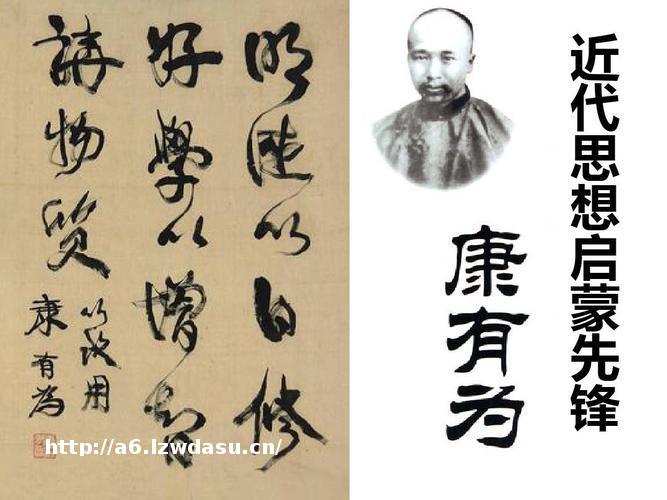 明德以自修
好學以增智
講物質
以致用
康有為
http://a6.lzwdasu.cn/
近代思想启蒙先锋
康有为